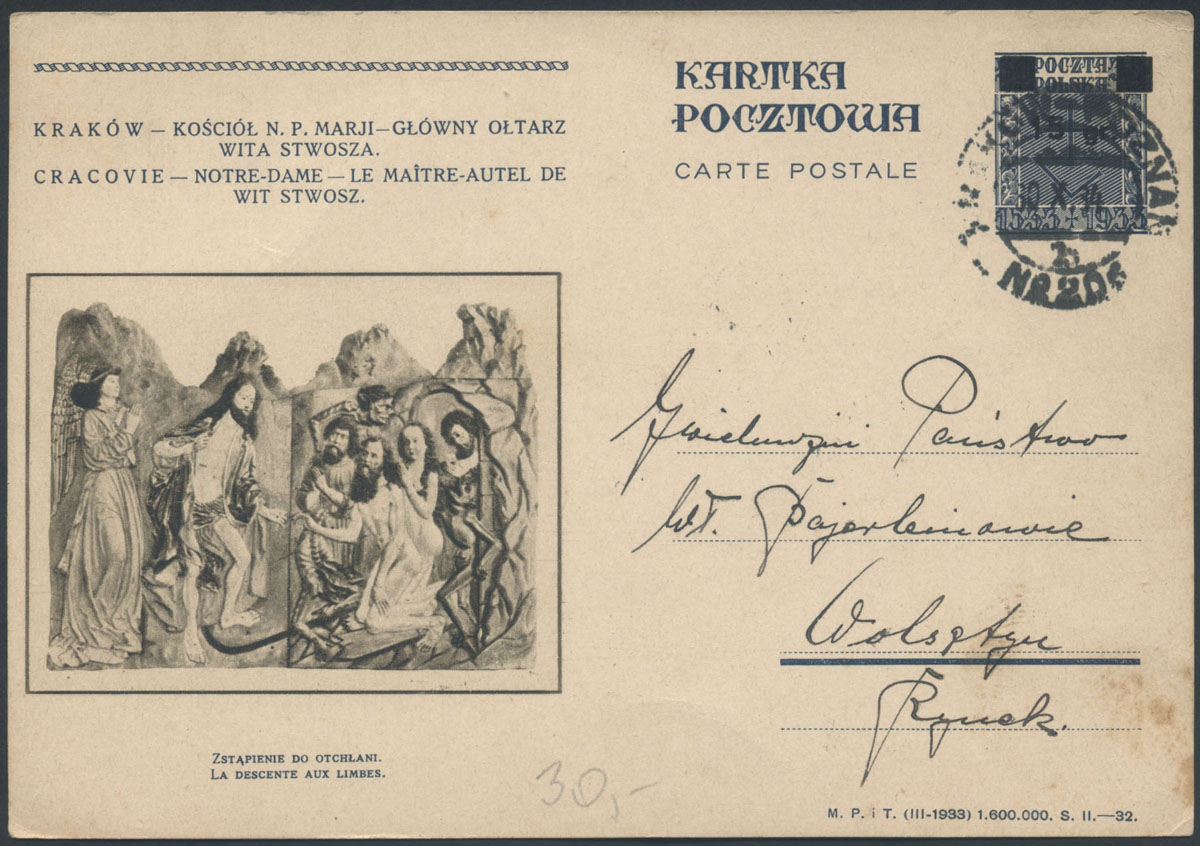 KRAKÓW — KOŚCIÓŁ N. P. MARJI—GŁÓWNY OŁTARZ
WITA STWOSZA.
CRACOVIE — NOTRE-DAME — LE MAÎTRE-AUTEL DE
WIT STWOSZ.
ZSTĄPIENIE DO OTCHŁANI.
LA DESCENTE AUX LIMBES.
KARTKA
POCZTOWA
CARTE POSTALE
POCZTA
POLSKA
15
10 X 34
1533+1933
NR 206
Państwo
Wł.
Wolsztyn
Rynek.
30,-
M. P. i T. (III-1933) 1.600.000. S. II.—32.